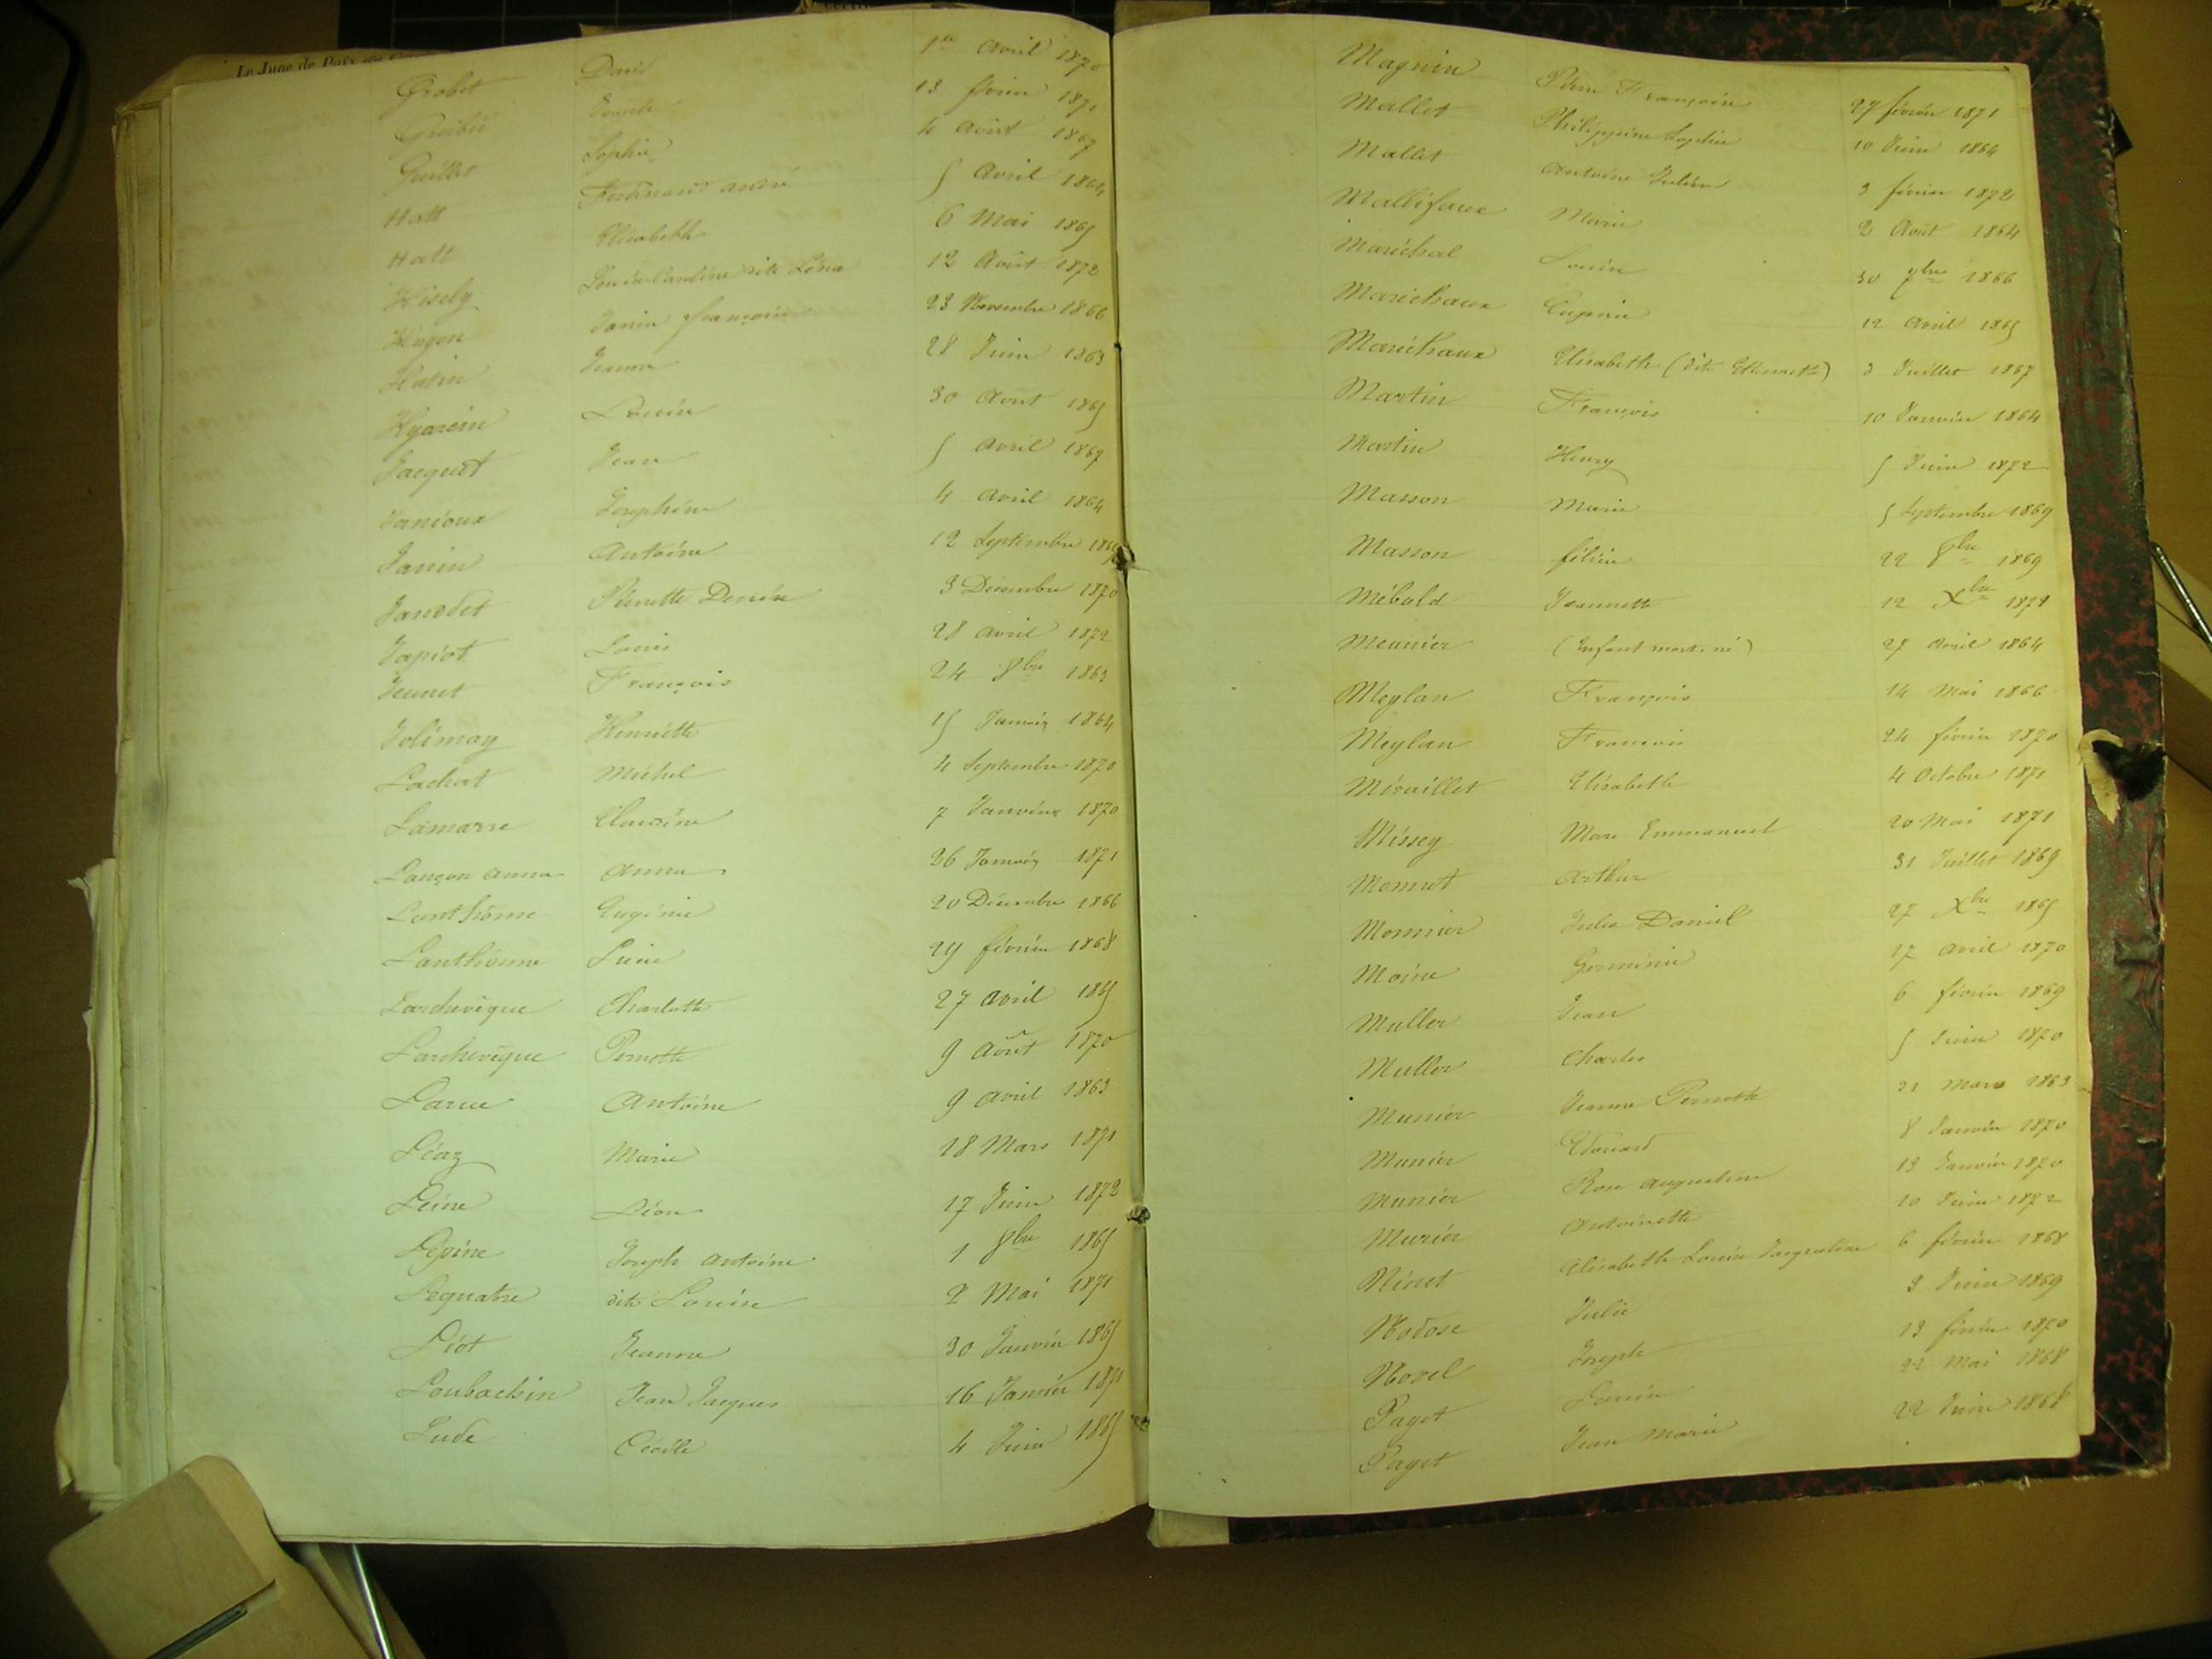 Le Juge de Paix du
Grobet David 1er Avril 1870
Joseph 13 février 1871
Guillet Sophie 4 Août 1867
Hatt Ferdinand André 5 Avril 1864
Hatt Elisabeth 6 Mai 1865
Hisely Louise Caroline dite Léna 12 Août 1872
Hugon Janin françoise 23 Novembre 1866
Hutin Jeanne 28 Juin 1863
Louise 30 Août 1865
Jacquet Jean 5 Avril 1867
Janioux Joséphine 4 Avril 1864
Janin Antoine 12 Septembre
Jandet Pierrette Denise 3 Décembre 1870
Japiot Louis 28 Avril 1872
Jeunet François 24 8bre 1863
Jolimay Henriette 15 Janvier 1864
Lachat Michel 4 Septembre 1870
Lamarre Claudine 7 Janvier 1870
Lançon Anna Anna 26 Janvier 1871
Lanthome Eugénie 20 Décembre 1866
Lanthome Lucie 29 février 1868
Larchevêque Charlotte 27 Avril 1865
Larchevêque Pernette 9 Août 1870
Larue Antoine 9 Avril 1863
Léaz Marie 18 Mars 1871
Leine Léon 17 Juin 1872
Lépine Joseph Antoine 1 8bre 1865
Lequatre dite Louise 2 Mai 1871
Liot Jeanne 30 Janvier 1865
Loubachin Jean Jacques 16 Janvier 1871
Lude Cécile 4 Juin 1865
Magnin Pierre Françoise 27 février 1871
Mallet Philippine Sophie 10 Juin 1864
Mallet Antoine Julien 3 février 1872
Mallifaux Marie 2 Août 1864
Maréchal Louise 30 7bre 1866
Maréchaux Eugénie 12 Avril 1865
Maréchaux Elisabeth (dite Ethernette) 3 Juillet 1867
Martin François 10 Janvier 1864
Martin Henry 5 Juin 1872
Masson Marie 5 Septembre 1869
Masson félicie 22 8bre 1869
Mébold Jeannette 12 Xbre 1871
Meunier (Enfant mort-né) 28 Avril 1864
Meylan François 14 Mai 1866
Meylan François 24 février 1870
Miraillet Elisabeth 4 Octobre 1871
Missey Marc Emmanuel 20 Mai 1871
Monnet Arthur 31 Juillet 1869
Monnier Jules Daniel 27 Xbre 1865
Moine Germinie 17 Avril 1870
Muller Jean 6 février 1869
Muller Charles 5 Juin 1870
Munier Jeanne Pernette 31 Mars 1863
Munier Edouard 8 Janvier 1870
Munier Rose Augustine 13 Janvier 1870
Murier Antoinette 10 Juin 1872
Ninet Elisabeth Louise Jacqueline 6 février 1868
Nodose Julie 3 Juin 1869
Novel Joseph 13 février 1870
Paget Louise 22 Mai 1868
Paget Jean Marie 22 Juin 1868